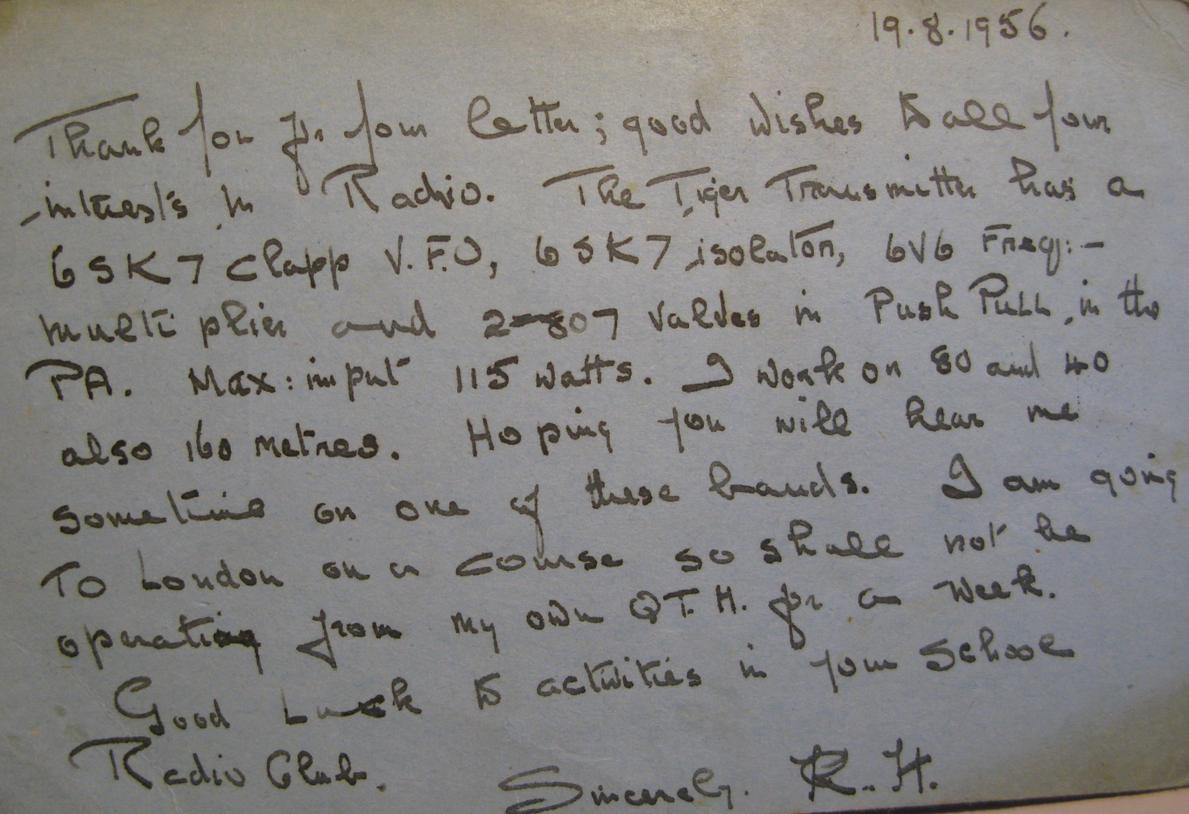 19.8.1956.
Thank you for your letter; good wishes to all your
interests in Radio. The Tiger Transmitter has a
6SK7 Clapp V.F.O, 6SK7 isolator, 6V6 Freq:-
multiplier and 2-807 valves in Push Pull in the
PA. Max: input 115 watts. I work on 80 and 40
also 160 metres. Hoping you will hear me
sometime on one of these bands. I am going
To London on a course so shall not be
operating from my own Q.T.H. for a week.
Good Luck to activities in your School
Radio Club.
Sincerely. R.H.